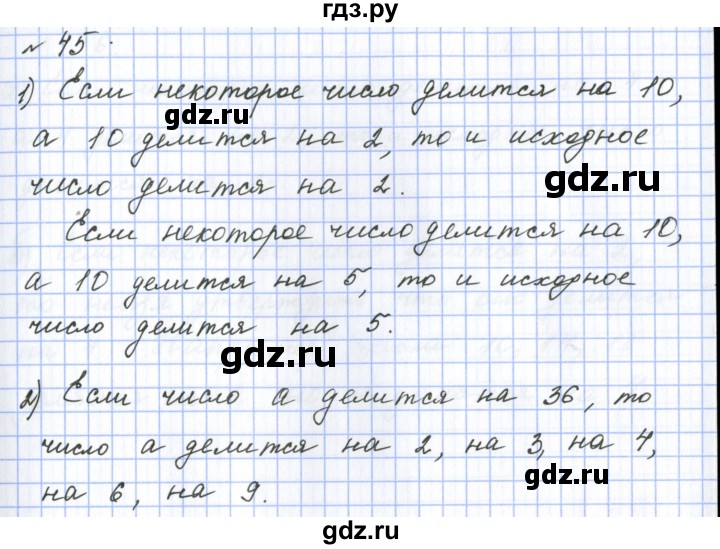 гдз.ру
№ 45.
1) Если некоторое число делится на 10,
gdz.ru
а 10 делится на 2, то и исходное
gdz.ru
число делится на 2.
Если некоторое число делится на 10,
а 10 делится на 5, то и исходное
число делится на 5.
gdz.ru
2) Если число а делится на 36, то
число а делится на 2, на 3, на 4,
gdz.ru
на 6, на 9.
gdz.ru